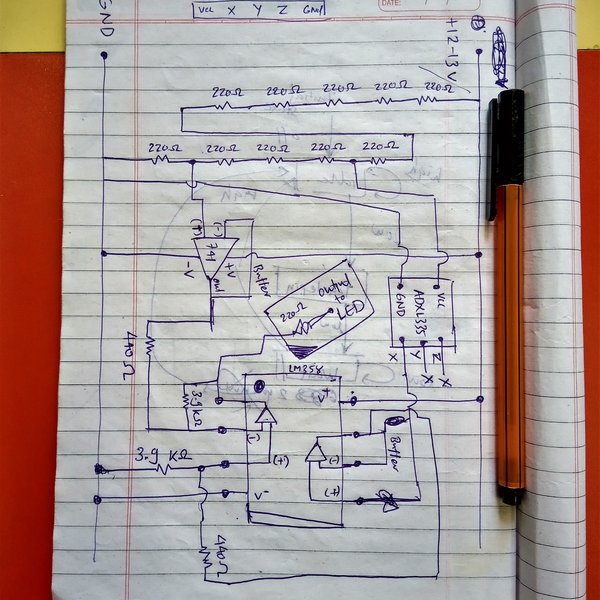 Vcc X Y Z GND
DATE:
GND
+12-13V
220Ω 220Ω 220Ω 220Ω 220Ω
220Ω 220Ω 220Ω 220Ω 220Ω
(+) (-)
741
-V +V
out
Buffer
output
to
LED
220Ω
Vcc
GND
ADXL335
X Y Z
X X
440Ω
LM358
V+
3.9KΩ
(-)
(+)
Buffer
(-)
(+)
3.9 KΩ
V-
440Ω